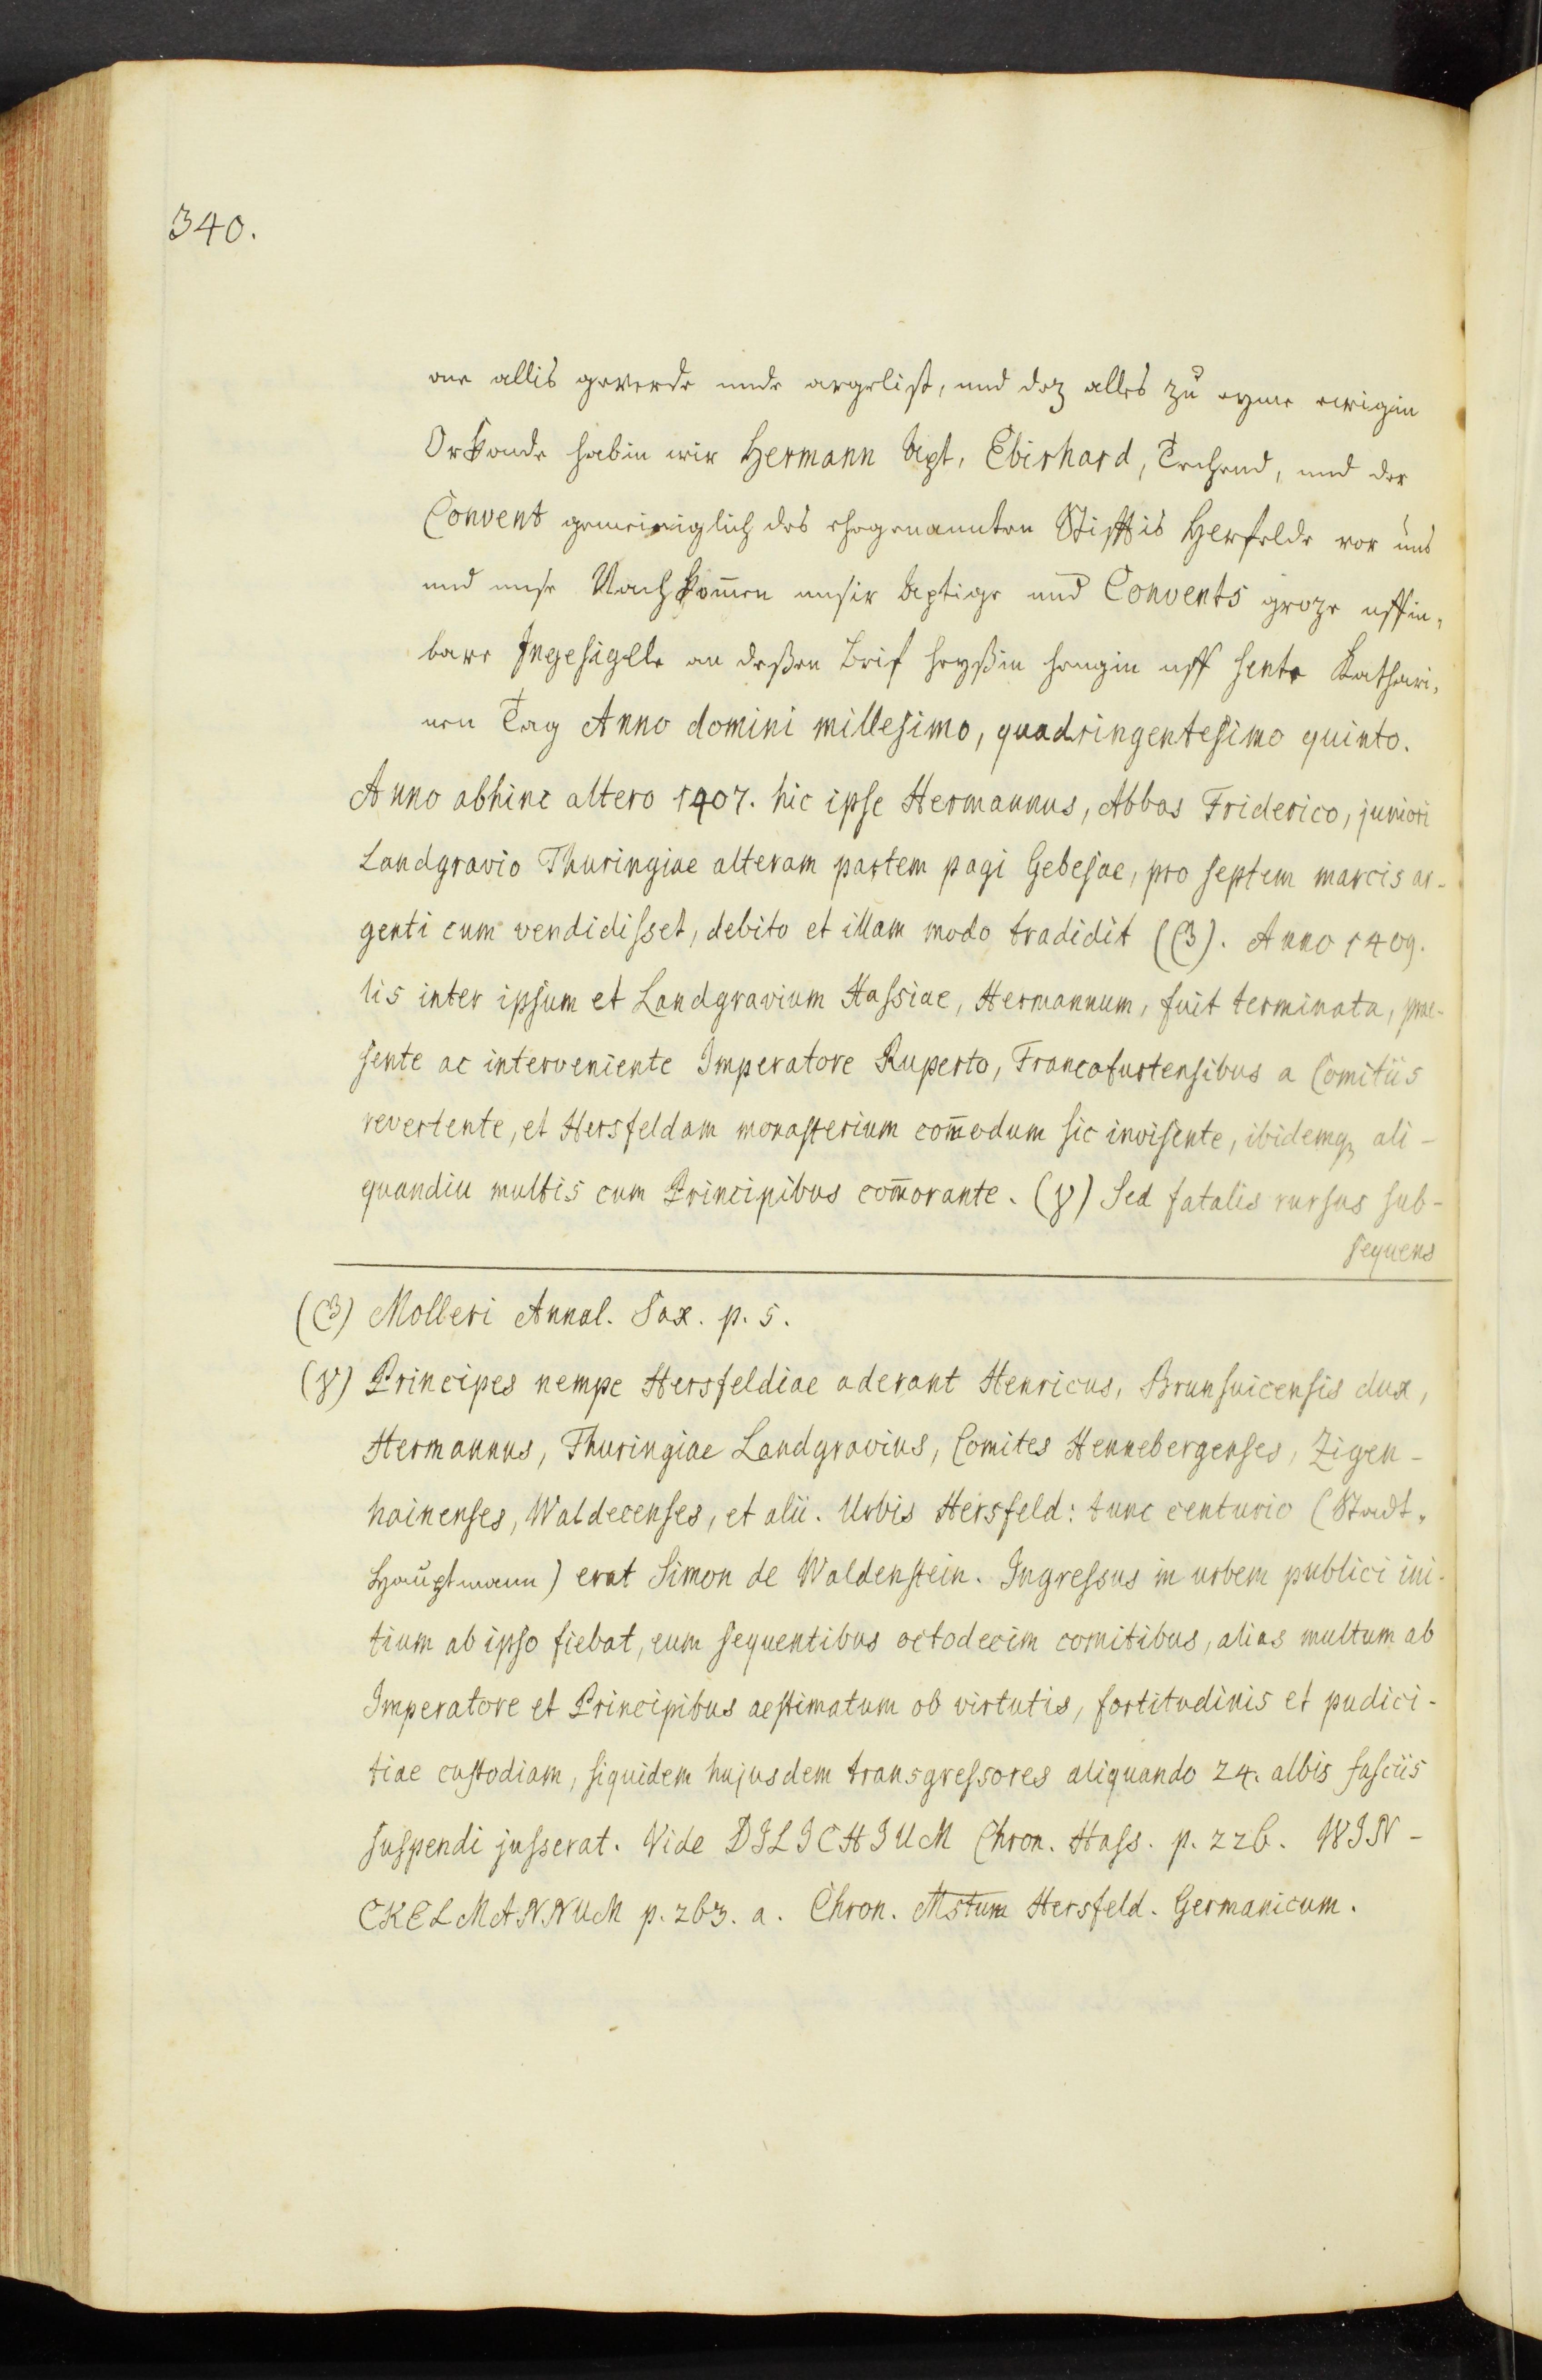 340.
ane allis geverde unde argelist, und daz alles zu eyme ewigin
Orkonde habin wir Hermann Apt, Ebirhard, Techend, und der
Convent gemeiniglich des ehegenannten Stifftis Herfelde vor uns
und unse Nachkom̄en unsir Aptige und Convents groze uffin„
bare Ingesigelle an deßen Brif heyßin hengin uff sente Kathari„
nen Tag Anno domini millesimo, quadringentesimo quinto.
Anno abhinc altero 1407. hic ipse Hermannus, Abbas Friderico, juniori
Landgravio Thuringiae alteram partem pagi Gebesae, pro septem marcis ar-
genti cum vendidisset, debito et illam modo tradidit (β). Anno 1409.
lis inter ipsum et Landgravium Hassiae, Hermannum, fuit terminata, prae-
sente ac interveniente Imperatore Ruperto, Francofurtensibus a Comitiis
revertente, et Hersfeldam monasterium com̄odum sic invisente, ibidemq₃ ali-
quandiu multis cum Principibus com̄orante. (γ) Sed fatalis rursus sub-
sequens
(β) Molleri Annal. Sax. p. 5.
(γ) Principes nempe Hersfeldiae aderant Henricus, Brunsuicensis dux,
Hermannus, Thuringiae Landgravius, Comites Hennebergenses, Zigen-
hainenses, Waldecenses, et alii. Urbis Hersfeld: tunc centurio (Stadt„
Hauptmann) erat Simon de Waldenstein. Ingressus in urbem publici ini-
tium ab ipso fiebat, eum sequentibus octodecim comitibus, alias multum ab
Imperatore et Principibus aestimatum ob virtutis, fortitudinis et pudici-
tiae custodiam, siquidem hujusdem transgressores aliquando 24. albis fasciis
suspendi jusserat. Vide DILICHIUM Chron. Hass. p. 226. WIN-
CKELMANNUM p. 263. a. Chron. Mstum Hersfeld. Germanicum.